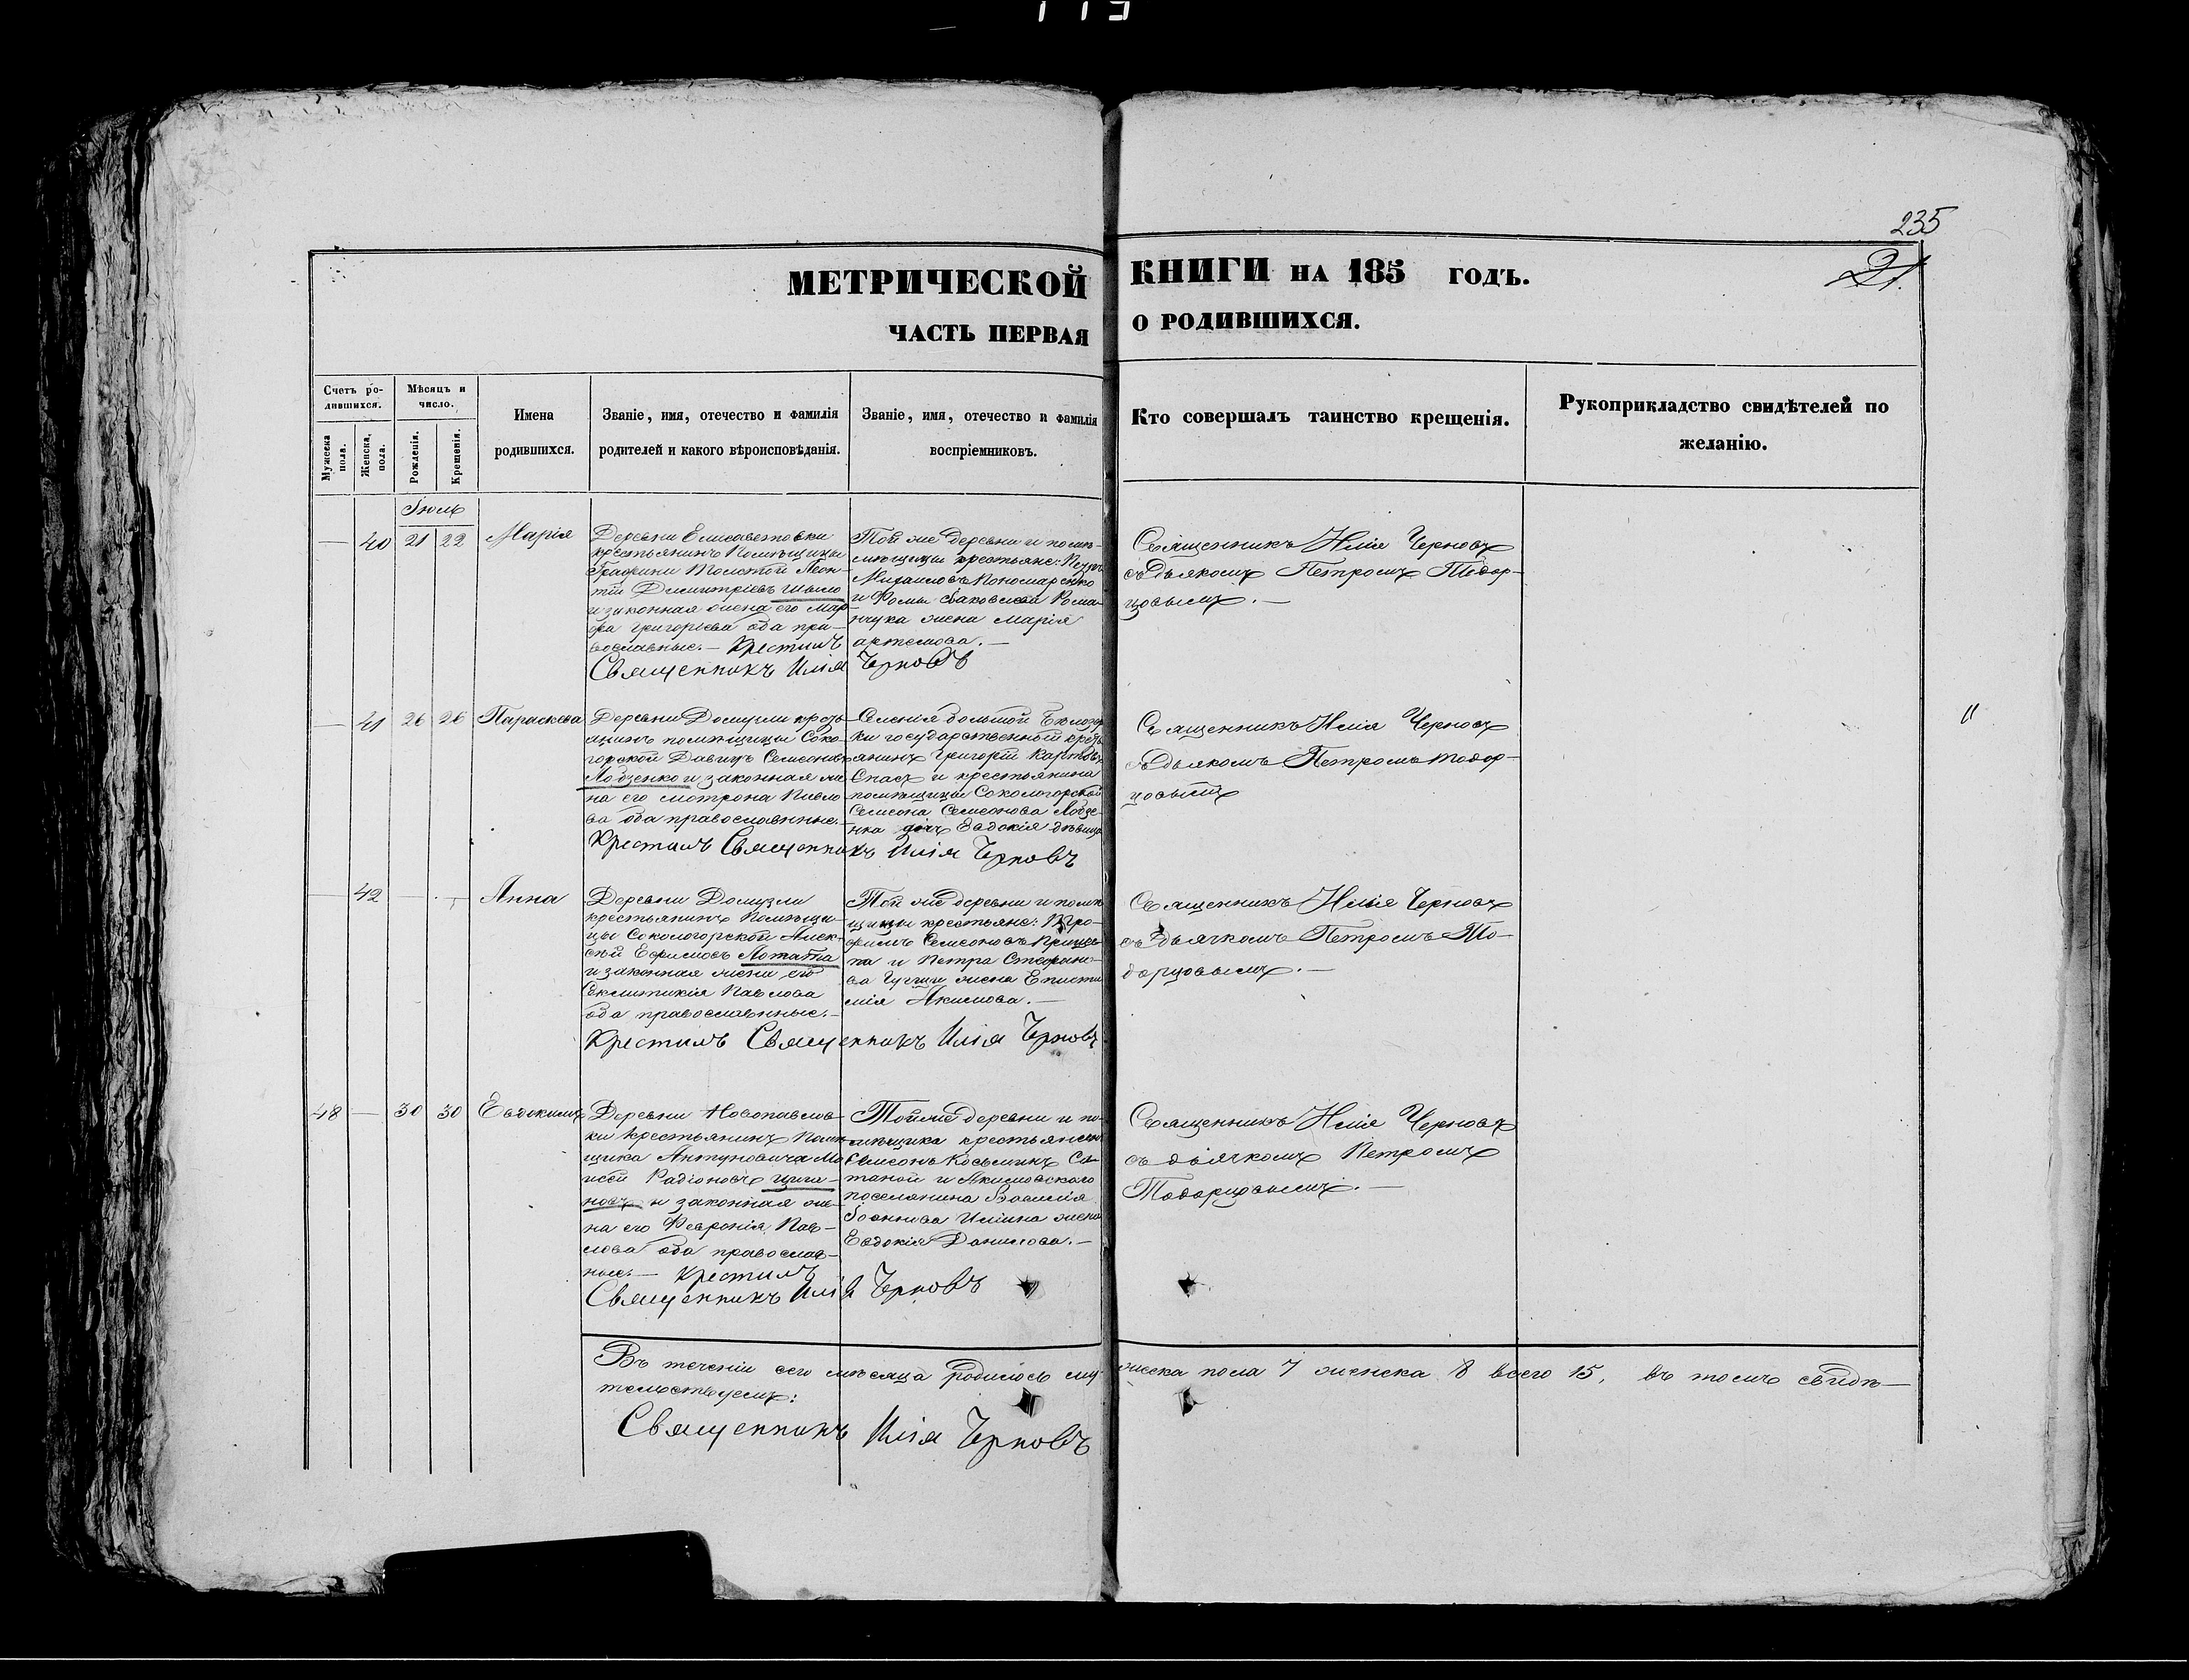 235
21.
МЕТРИЧЕСКОЙ КНИГИ НА 185 ГОДЪ.
ЧАСТЬ ПЕРВАЯ О РОДИВШИХСЯ.
Счетъ ро-
дившихся.
Мужеска
пола.
Женска,
пола.
Мѣсяцъ и
число.
Рожденія.
Крещенія.
Имена
родившихся.
Званіе, имя, отечество и фамилія
родителей и какого вѣроисповѣданія.
Званіе, имя, отечество и фамилія
воспріемниковъ.
Кто совершалъ таинство крещенія.
Рукоприкладство свидѣтелей по
желанію.
Іюль
— 40 21 22 Марія
Деревни Елисаветовки
крестьянинъ Помѣщицы
Графини Толстой Леон-
тій Димитріевъ Шыло
и законная жена его Мар-
фа Григорьева оба пра-
вославные.— Крестилъ
Священникъ Илія Черновъ
Той же деревни и помѣ-
щицы крестьяне: Петръ
Михаиловъ Пономаренко
и Фомы Іаковлева Рома-
нчука жена Марія
Артемова.—
Священникъ Илія Черновъ
съ дьякомъ Петромъ Тодор-
цовымъ.—
— 41 26 26 Параскева
Деревни Домузли кресть-
янинъ помѣщицы Соко-
горской Давидъ Семеоновъ
Лобзенко и законная же-
на его Мотрона Павло-
ва оба православные.—
Крестилъ Священникъ Илія Черновъ
Селенія большой Бѣлозер-
ки государственный кресть-
янинъ Григорій Карповъ
Спасъ и крестьянина
помѣщицы Сокологорской
Семеона Семеонова Лобзе-
нка дочь Евдокія дѣвица
Священникъ Илія Черновъ
съ дьякомъ Петромъ Тодор-
цовымъ
— 42 — — Анна
Деревни Домузли
крестьянинъ Помѣщи-
цы Сокологорской Алек-
сѣй Ефимовъ Лотата
и законная жена его
Павлова
оба православные.—
Крестилъ Священникъ Илія Черновъ
Той же деревни и помѣ-
щицы крестьяне: Тро-
фимъ Семеоновъ
па и Петра Стефано-
ва жена Еписти-
мія Акимова.—
Священникъ Илія Черновъ
съ дьячкомъ Петромъ То-
дорцовымъ.—
48 — 30 30 Евдокимъ
Деревни Новопавлов-
ки крестьянинъ Помѣ-
щика Антуновича Мо-
исей Радіоновъ Цыга-
новъ и законная же-
на его Февронія Пав-
лова оба православ-
ные.— Крестилъ
Священникъ Илія Черновъ
Той же деревни и по-
мѣщика крестьянинъ
Семеонъ Косьминъ Са-
таной и Акимовскаго
поселянина Василія
Іоаннова Илина жена
Евдокія Данилова.—
Священникъ Илія Черновъ
съ дьячкомъ Петромъ
Тодорцовымъ.—
Въ теченіи сего мѣсяца родилось мужеска пола 7 женска 8 всего 15, въ томъ свидѣ-
тельствуемъ:
Священникъ Илія Черновъ